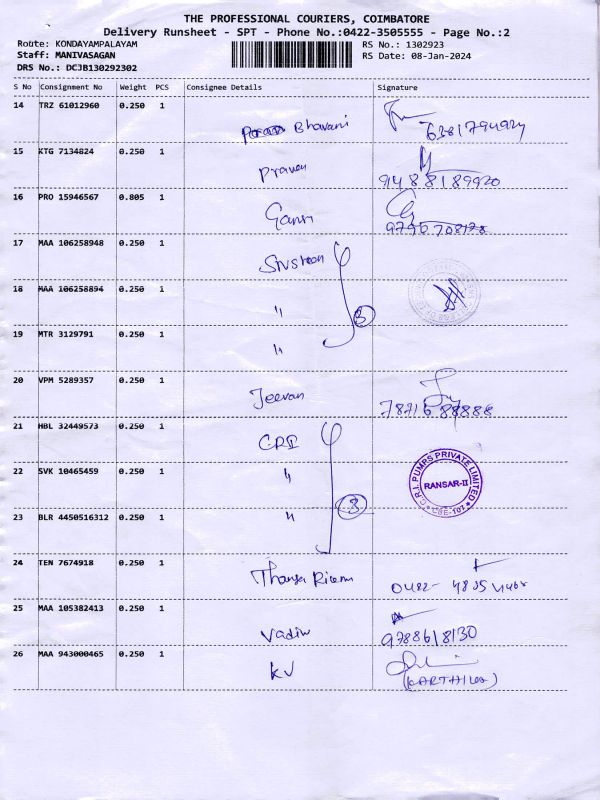 THE PROFESSIONAL COURIERS, COIMBATORE
Delivery Runsheet - SPT - Phone No.:0422-3505555 - Page No.:2
Route: KONDAYAMPALAYAM RS No.: 1302923
Staff: MANIVASAGAN RS Date: 08-Jan-2024
DRS No.: DCJB130292302
S No Consignment No Weight PCS Consignee Details Signature
14 TRZ 61012960 0.250 1 Bhavani
15 KTG 7134824 0.250 1 Praven
9488189920
16 PRO 15946567 0.805 1
17 MAA 106258948 0.250 1
18 MAA 106258894 0.250 1 "
19 MTR 3129791 0.250 1 "
20 VPM 5289357 0.250 1 Jeevan
21 HBL 32449573 0.250 1 CRI
22 SVK 10465459 0.250 1 " C.R.I. PUMPS PRIVATE LIMITED
RANSAR-II
CBE-107
23 BLR 4450516312 0.250 1 " 3
24 TEN 7674918 0.250 1
25 MAA 105382413 0.250 1
9788618130
26 MAA 943000465 0.250 1 KV